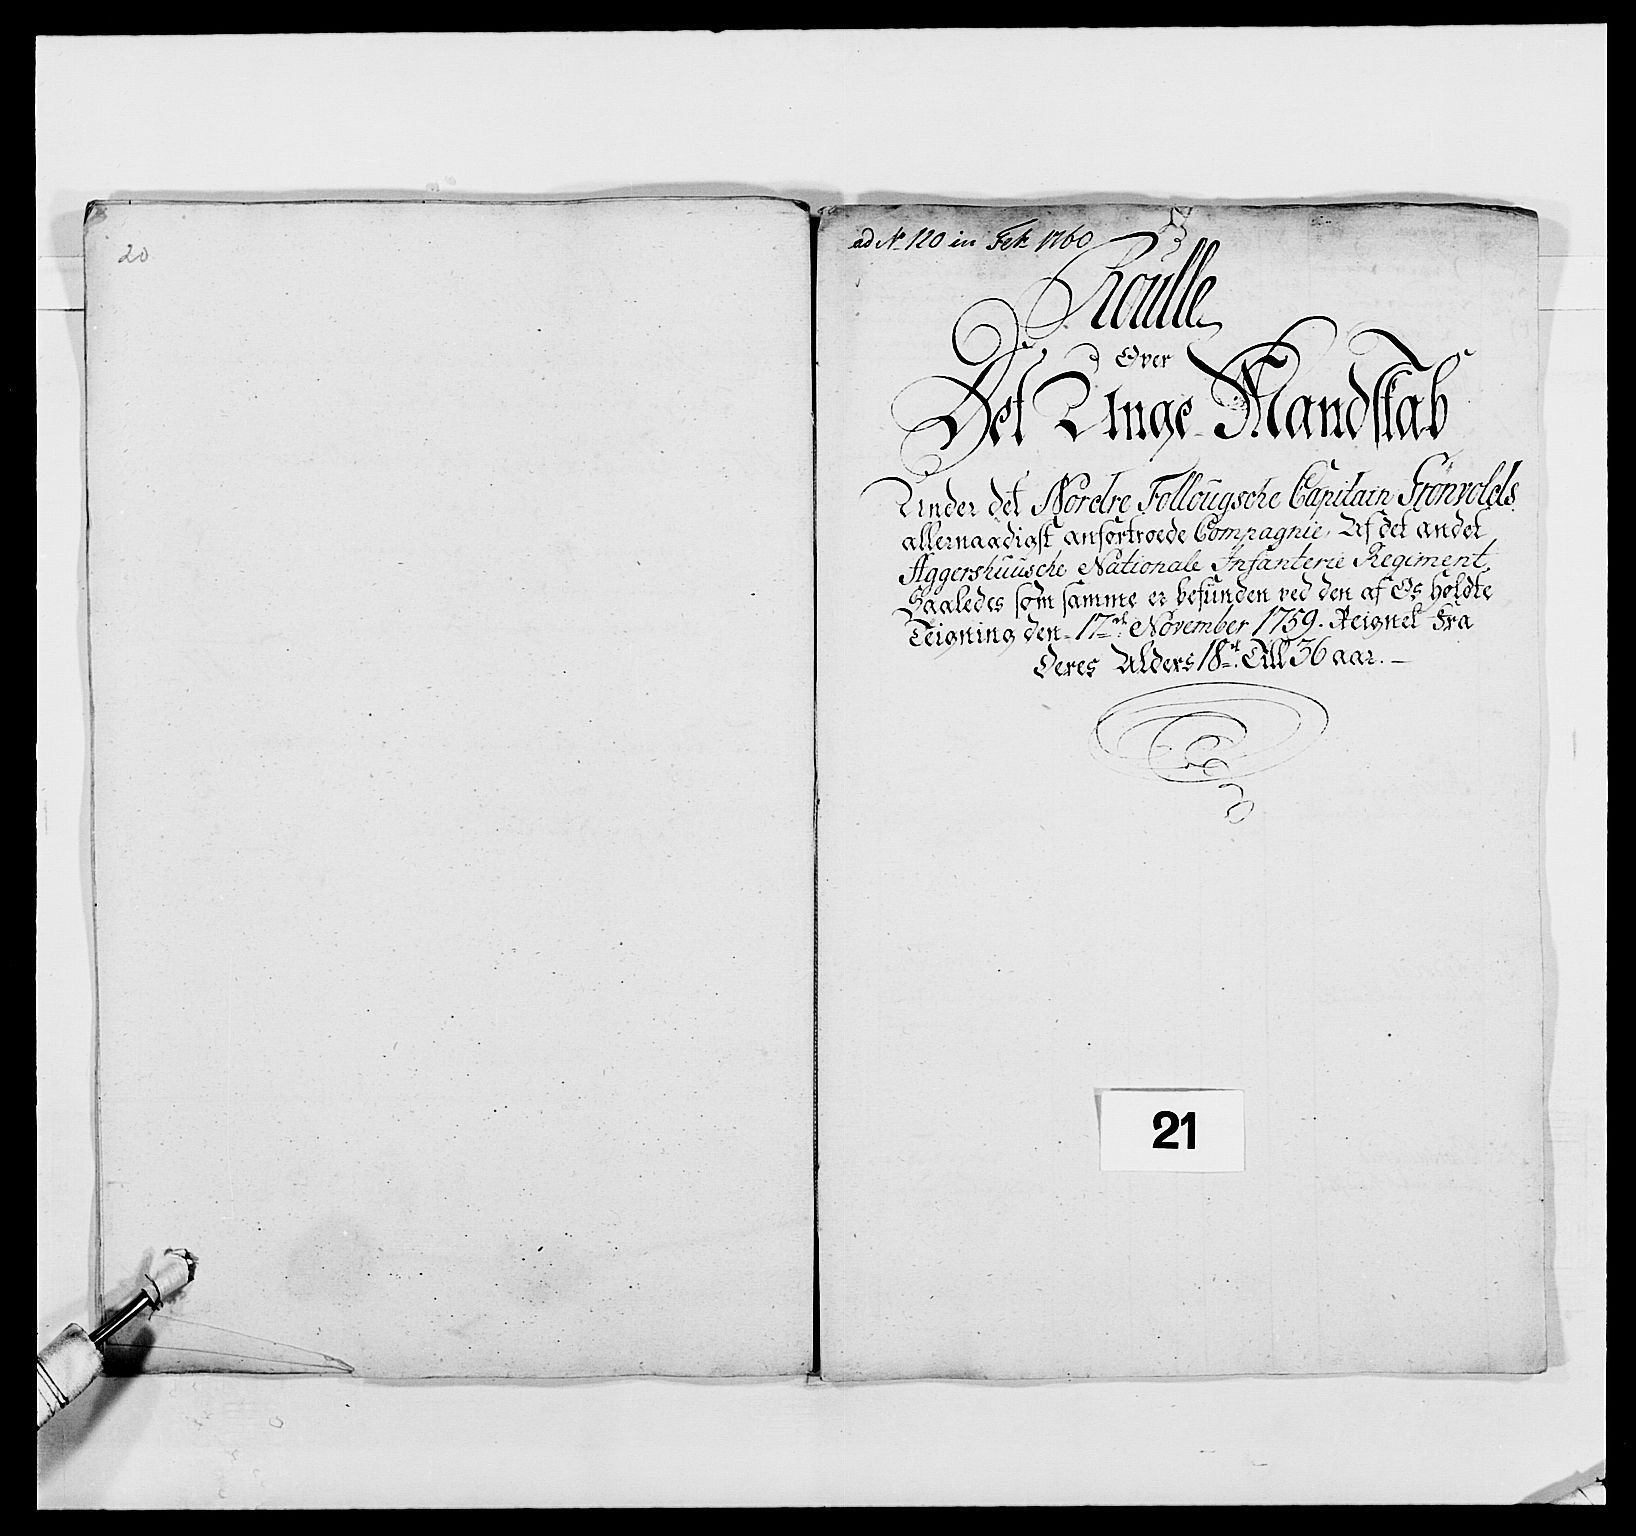 20
ad N. 120 in Feb. 1760
Roulle
Over
Det Unge Mandskab
Under det Nordre Follougsche Capitain Grönvolds
allernaadigst anfortroede Compagnie, Af det andet
Aggershuusche Nationale Infanterie Regiment,
Saaledes som samme er befunden ved den af Os holdte
Teigning den 17de November 1759. Reignet fra
Deres Alders 18de Till 36 aar. —
21